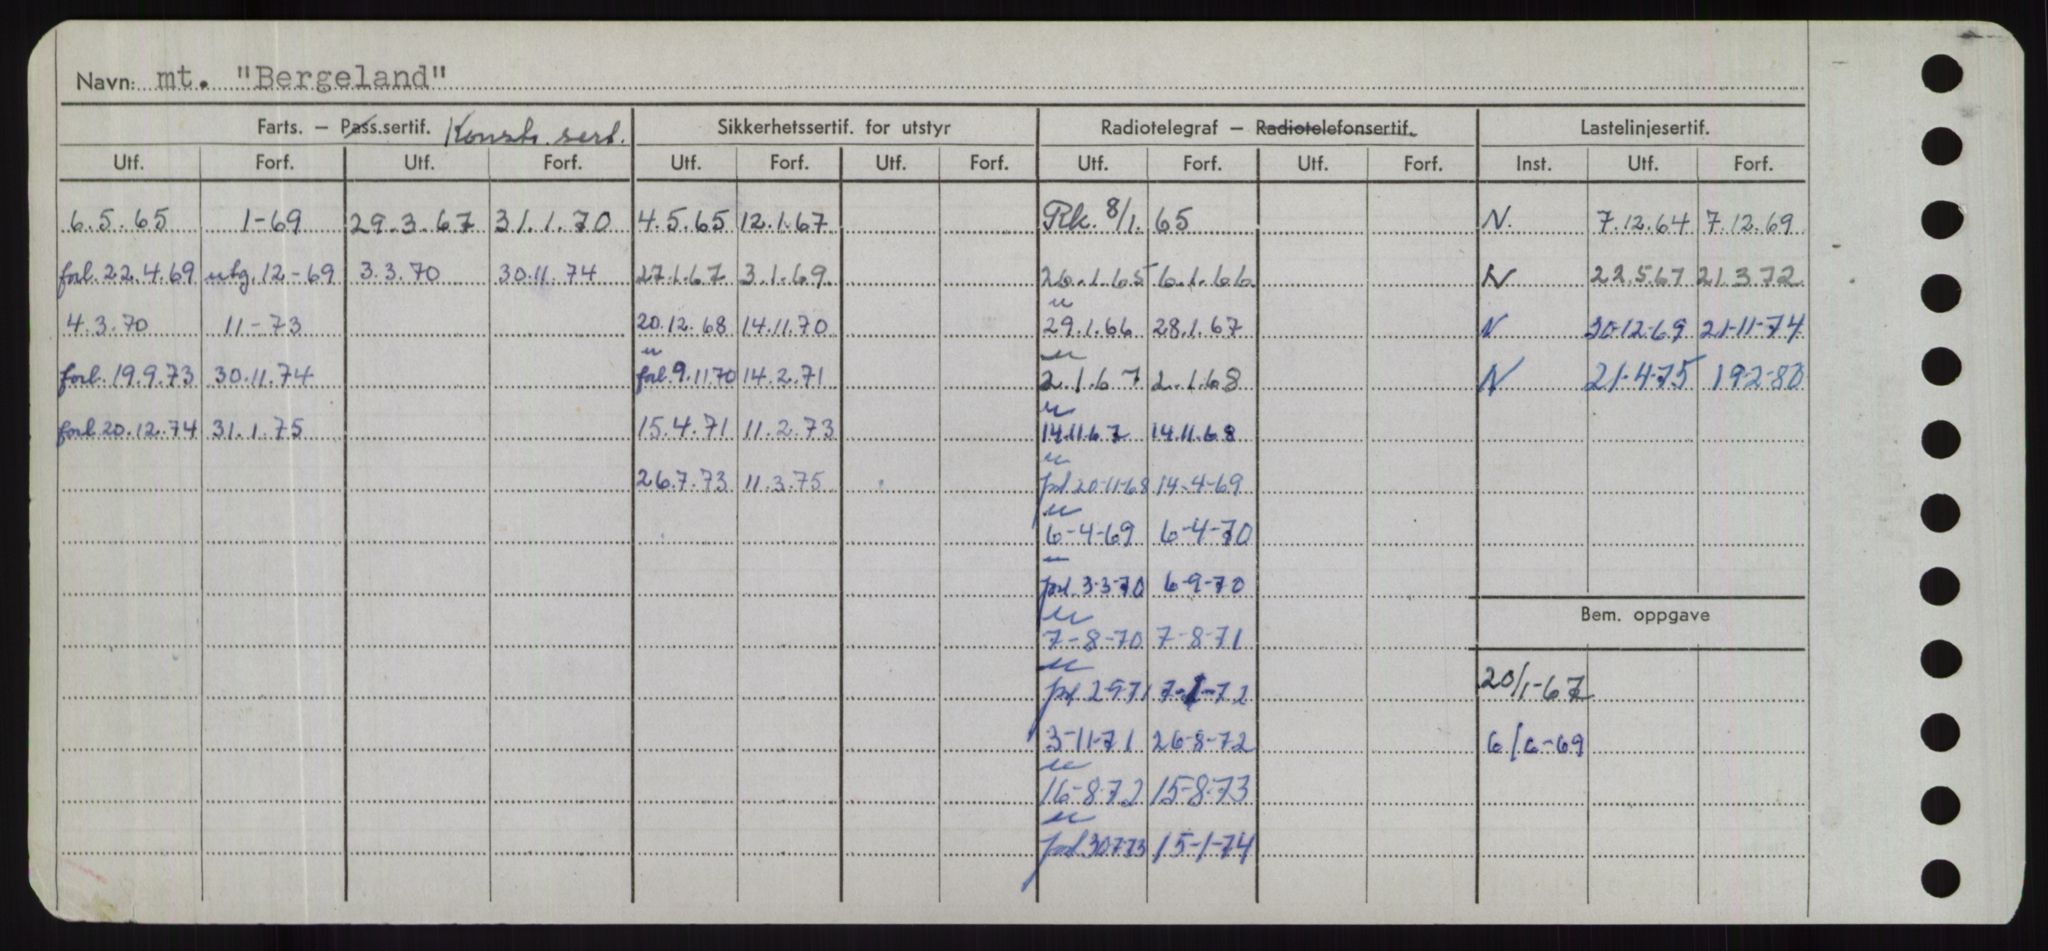 Navn: mt. "Bergeland"
Farts. – Pass.sertif. Konstr. sert. Sikkerhetssertif. for utstyr Radiotelegraf – Radiotelefonsertif. Lastelinjesertif.
Utf. Forf. Utf. Forf. Utf. Forf. Utf. Forf. Utf. Forf. Utf. Forf. Inst. Utf. Forf.
6.5.65 1-69 29.3.67 31.1.70 4.5.65 12.1.67 Rk. 8/1. 65 N. 7.12.64 7.12.69
forl. 22.4.69 utg. 12-69 3.3.70 30.11.74 27.1.67 3.1.69 26.1.65 6.1.66 N 22.5.67 21.3.72
4.3.70 11-73 20.12.68 14.11.70 29.1.66 28.1.67 N 30-12-69 21-11-74
forl. 19.9.73 30.11.74 forl. 9.11.70 14.2.71 2.1.67 2.1.68 N 21-4-75 19-2-80
forl. 20.12.74 31.1.75 15.4.71 11.2.73 14.11.67 14.11.68
26.7.73 11.3.75 forl 20-11-68 14-4-69
6-4-69 6-4-70
forl. 3-3-70 6-9-70
Bem. oppgave
7-8-70 7-8-71
20/1-67
forl 2-9-71 7-1-72
3-11-71 26-8-72 6/6-69
16-8-72 15-8-73
forl 30-7-73 15-1-74